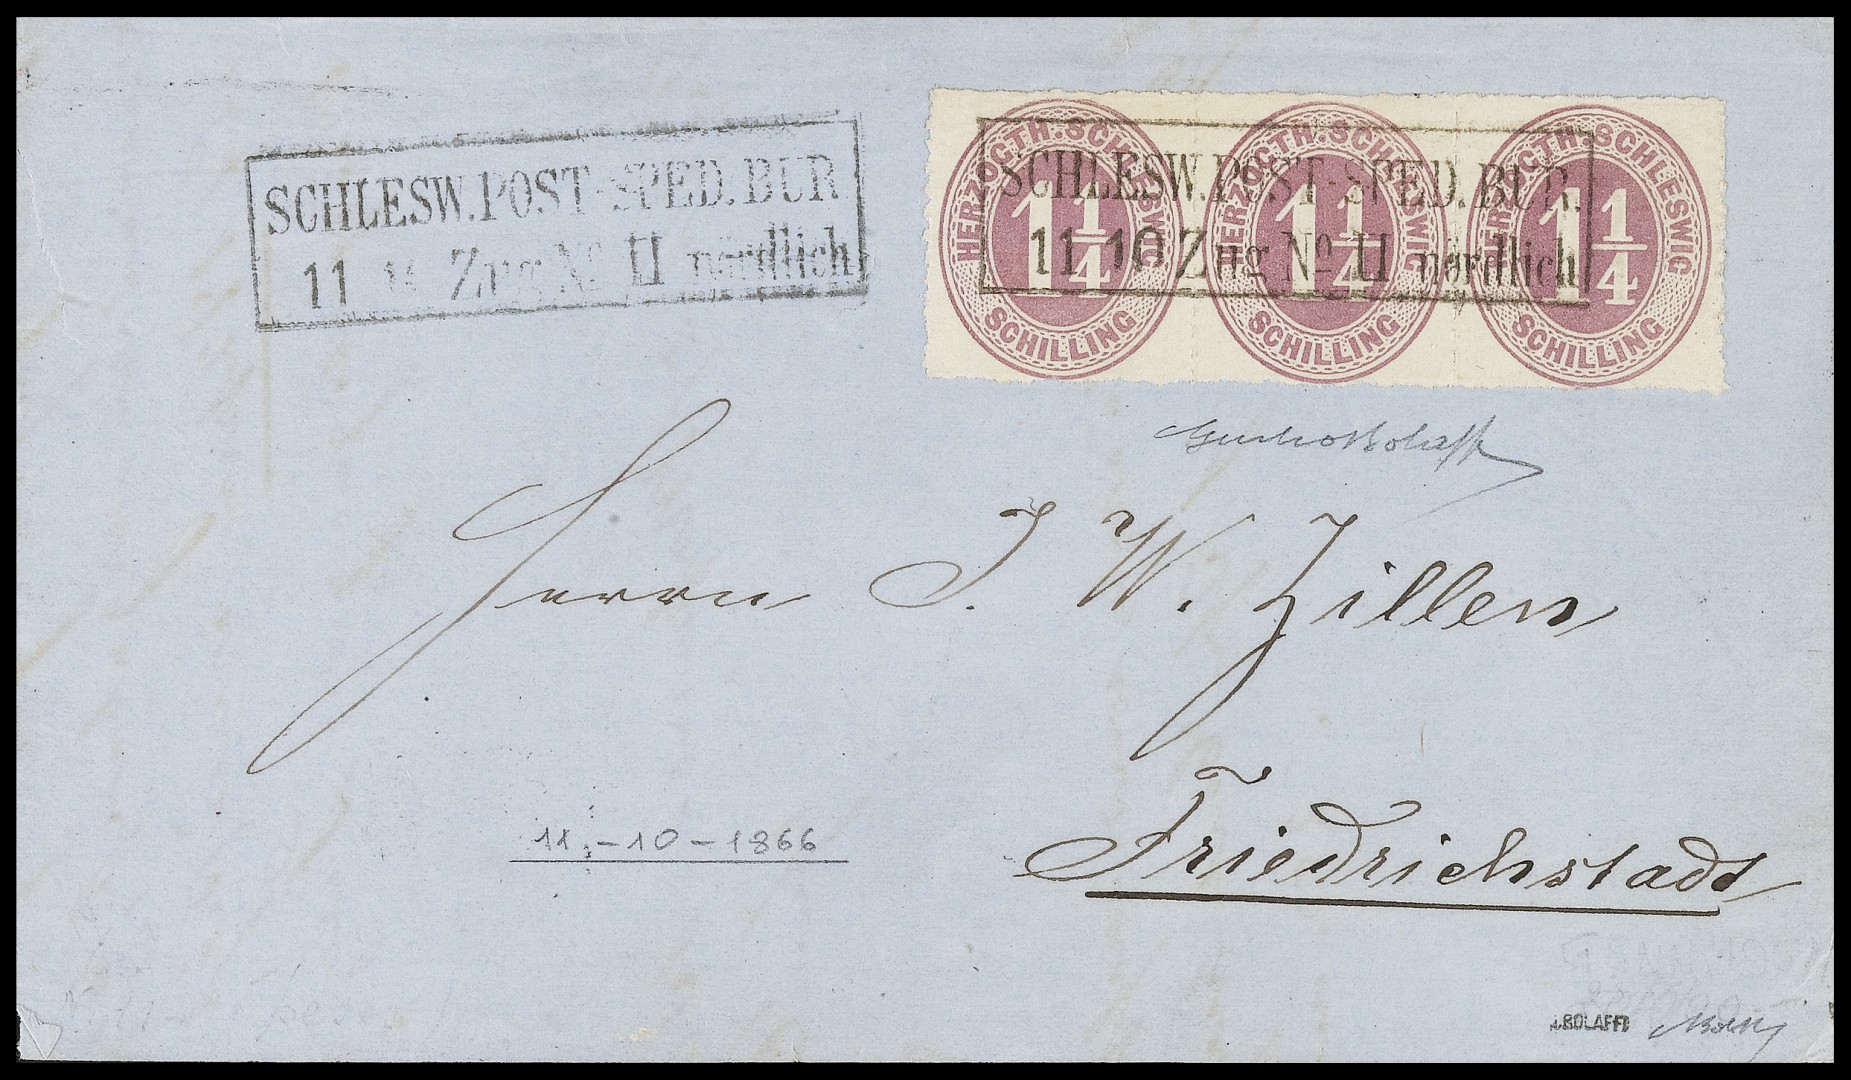 SCHLESW.POST-SPED.BUR.
11 10 Zug No II nördlich
HERZOGTH. SCHLESWIG
1 1/4
SCHILLING
HERZOGTH. SCHLESWIG
1 1/4
SCHILLING
HERZOGTH. SCHLESWIG
1 1/4
SCHILLING
SCHLESW.POST-SPED.BUR.
11 10 Zug No II nördlich
Herrn J. W. Zillen
Friedrichstadt
11.-10-1866
A.BOLAFFI